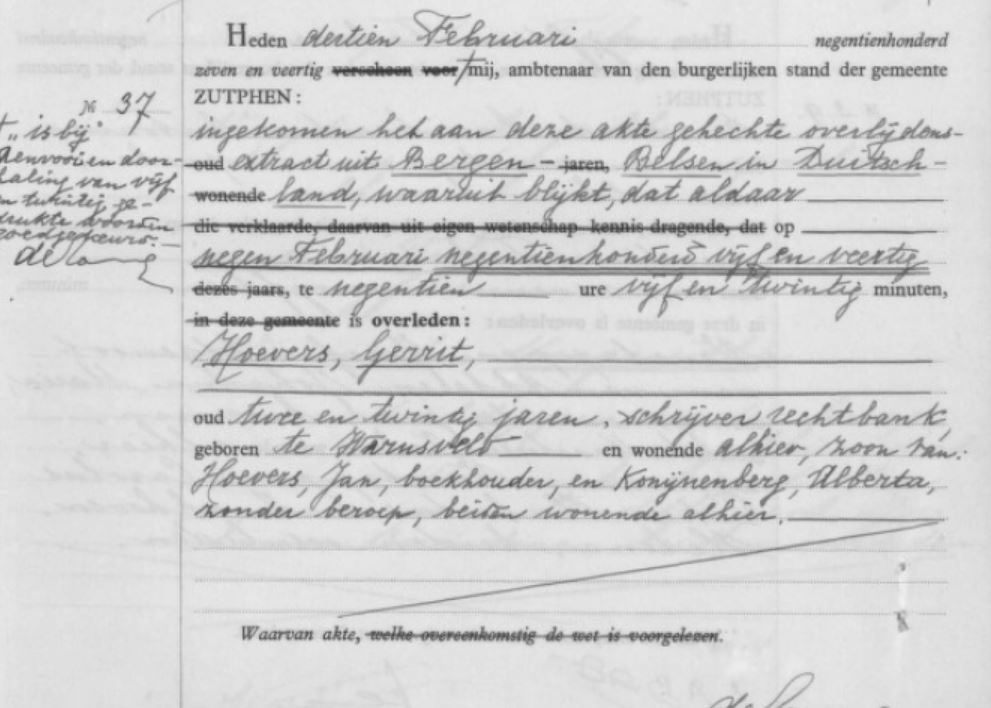 Heden dertien Februari negentienhonderd
zeven en veertig verscheen voor mij, ambtenaar van den burgerlijken stand der gemeente
ZUTPHEN:
№ 37
"is bij
doorhaling van vijf
en twintig ge-
drukte woorden
goedgekeurd.
ingekomen het aan deze akte gehechte overlijdens-
oud extract uit Bergen - jaren, Belsen in Duitsch-
wonende land, waaruit blijkt, dat aldaar
die verklaarde, daarvan uit eigen wetenschap kennis dragende, dat op
negen Februari negentienhonderd vijf en veertig
dezes jaars, te negentien ure vijf en twintig minuten,
in deze gemeente is overleden:
Hoevers, Gerrit,
oud twee en twintig jaren, schrijver rechtbank
geboren te Warnsveld en wonende alhier, zoon van:
Hoevers, Jan, boekhouder, en Konijnenberg, Alberta,
zonder beroep, beiden wonende alhier.
Waarvan akte, welke overeenkomstig de wet is voorgelezen.